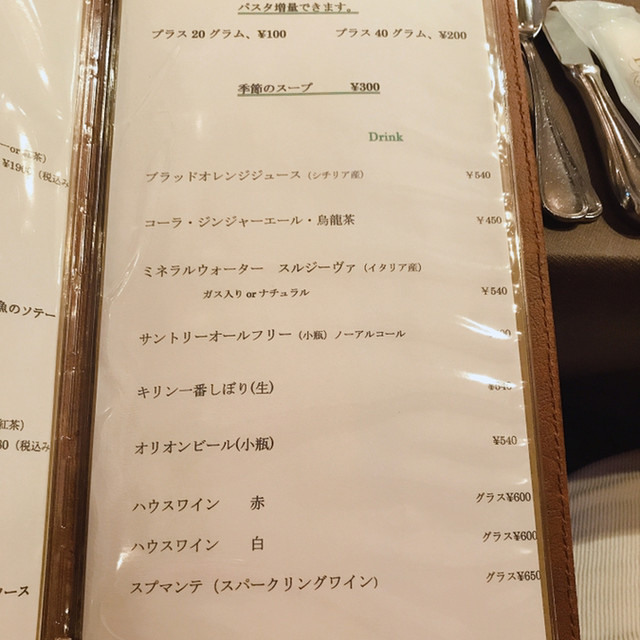 パスタ増量できます。
プラス20グラム、¥100　プラス40グラム、¥200
季節のスープ　¥300
Drink
ブラッドオレンジジュース（シチリア産）　￥540
コーラ・ジンジャーエール・烏龍茶　￥450
ミネラルウォーター　スルジーヴァ（イタリア産）
ガス入り or ナチュラル　￥540
サントリーオールフリー（小瓶）ノーアルコール
キリン一番しぼり(生)　¥540
オリオンビール(小瓶)　¥540
ハウスワイン　赤　グラス¥600
ハウスワイン　白　グラス¥600
スプマンテ（スパークリングワイン）　グラス¥650
or 紅茶）
（税込み
魚のソテー
紅茶）
（税込み
ース